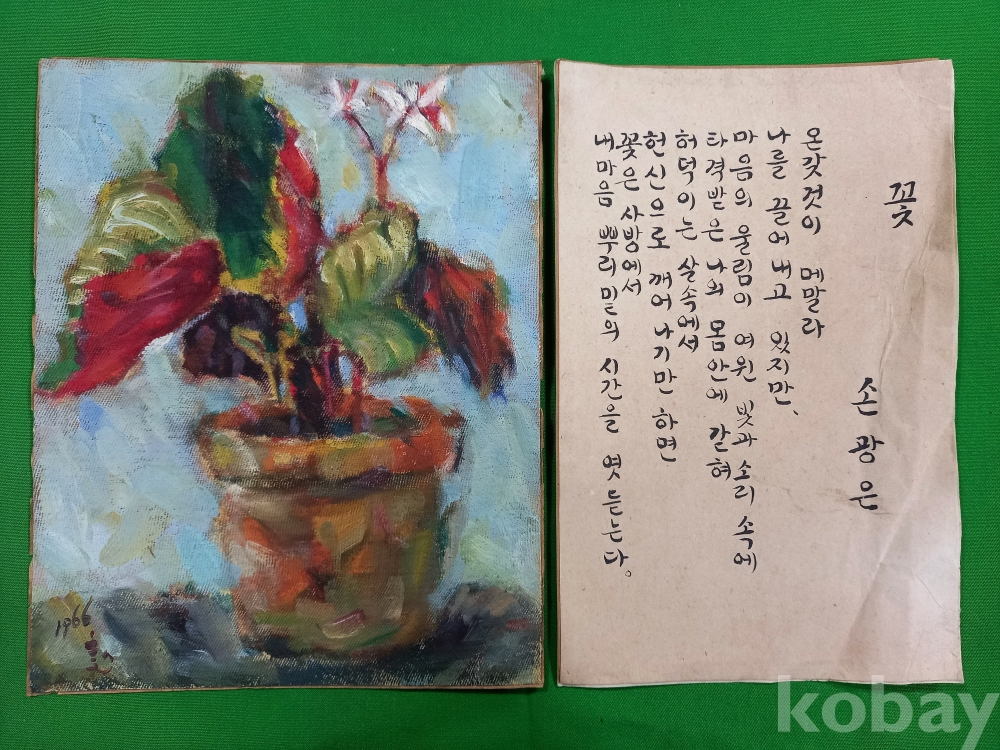 꽃
손 광 은
온갖것이 메말라
나를 끌어 내고 있지만,
마음의 울림이 여윈 빛과 소리 속에
타격받은 나의 몸안에 갇혀
허덕이는 살속에서
헌신으로 깨어나기만 하면
꽃은 사방에서
내마음 뿌리밑의 시간을 엿듣는다.
1966
kobay